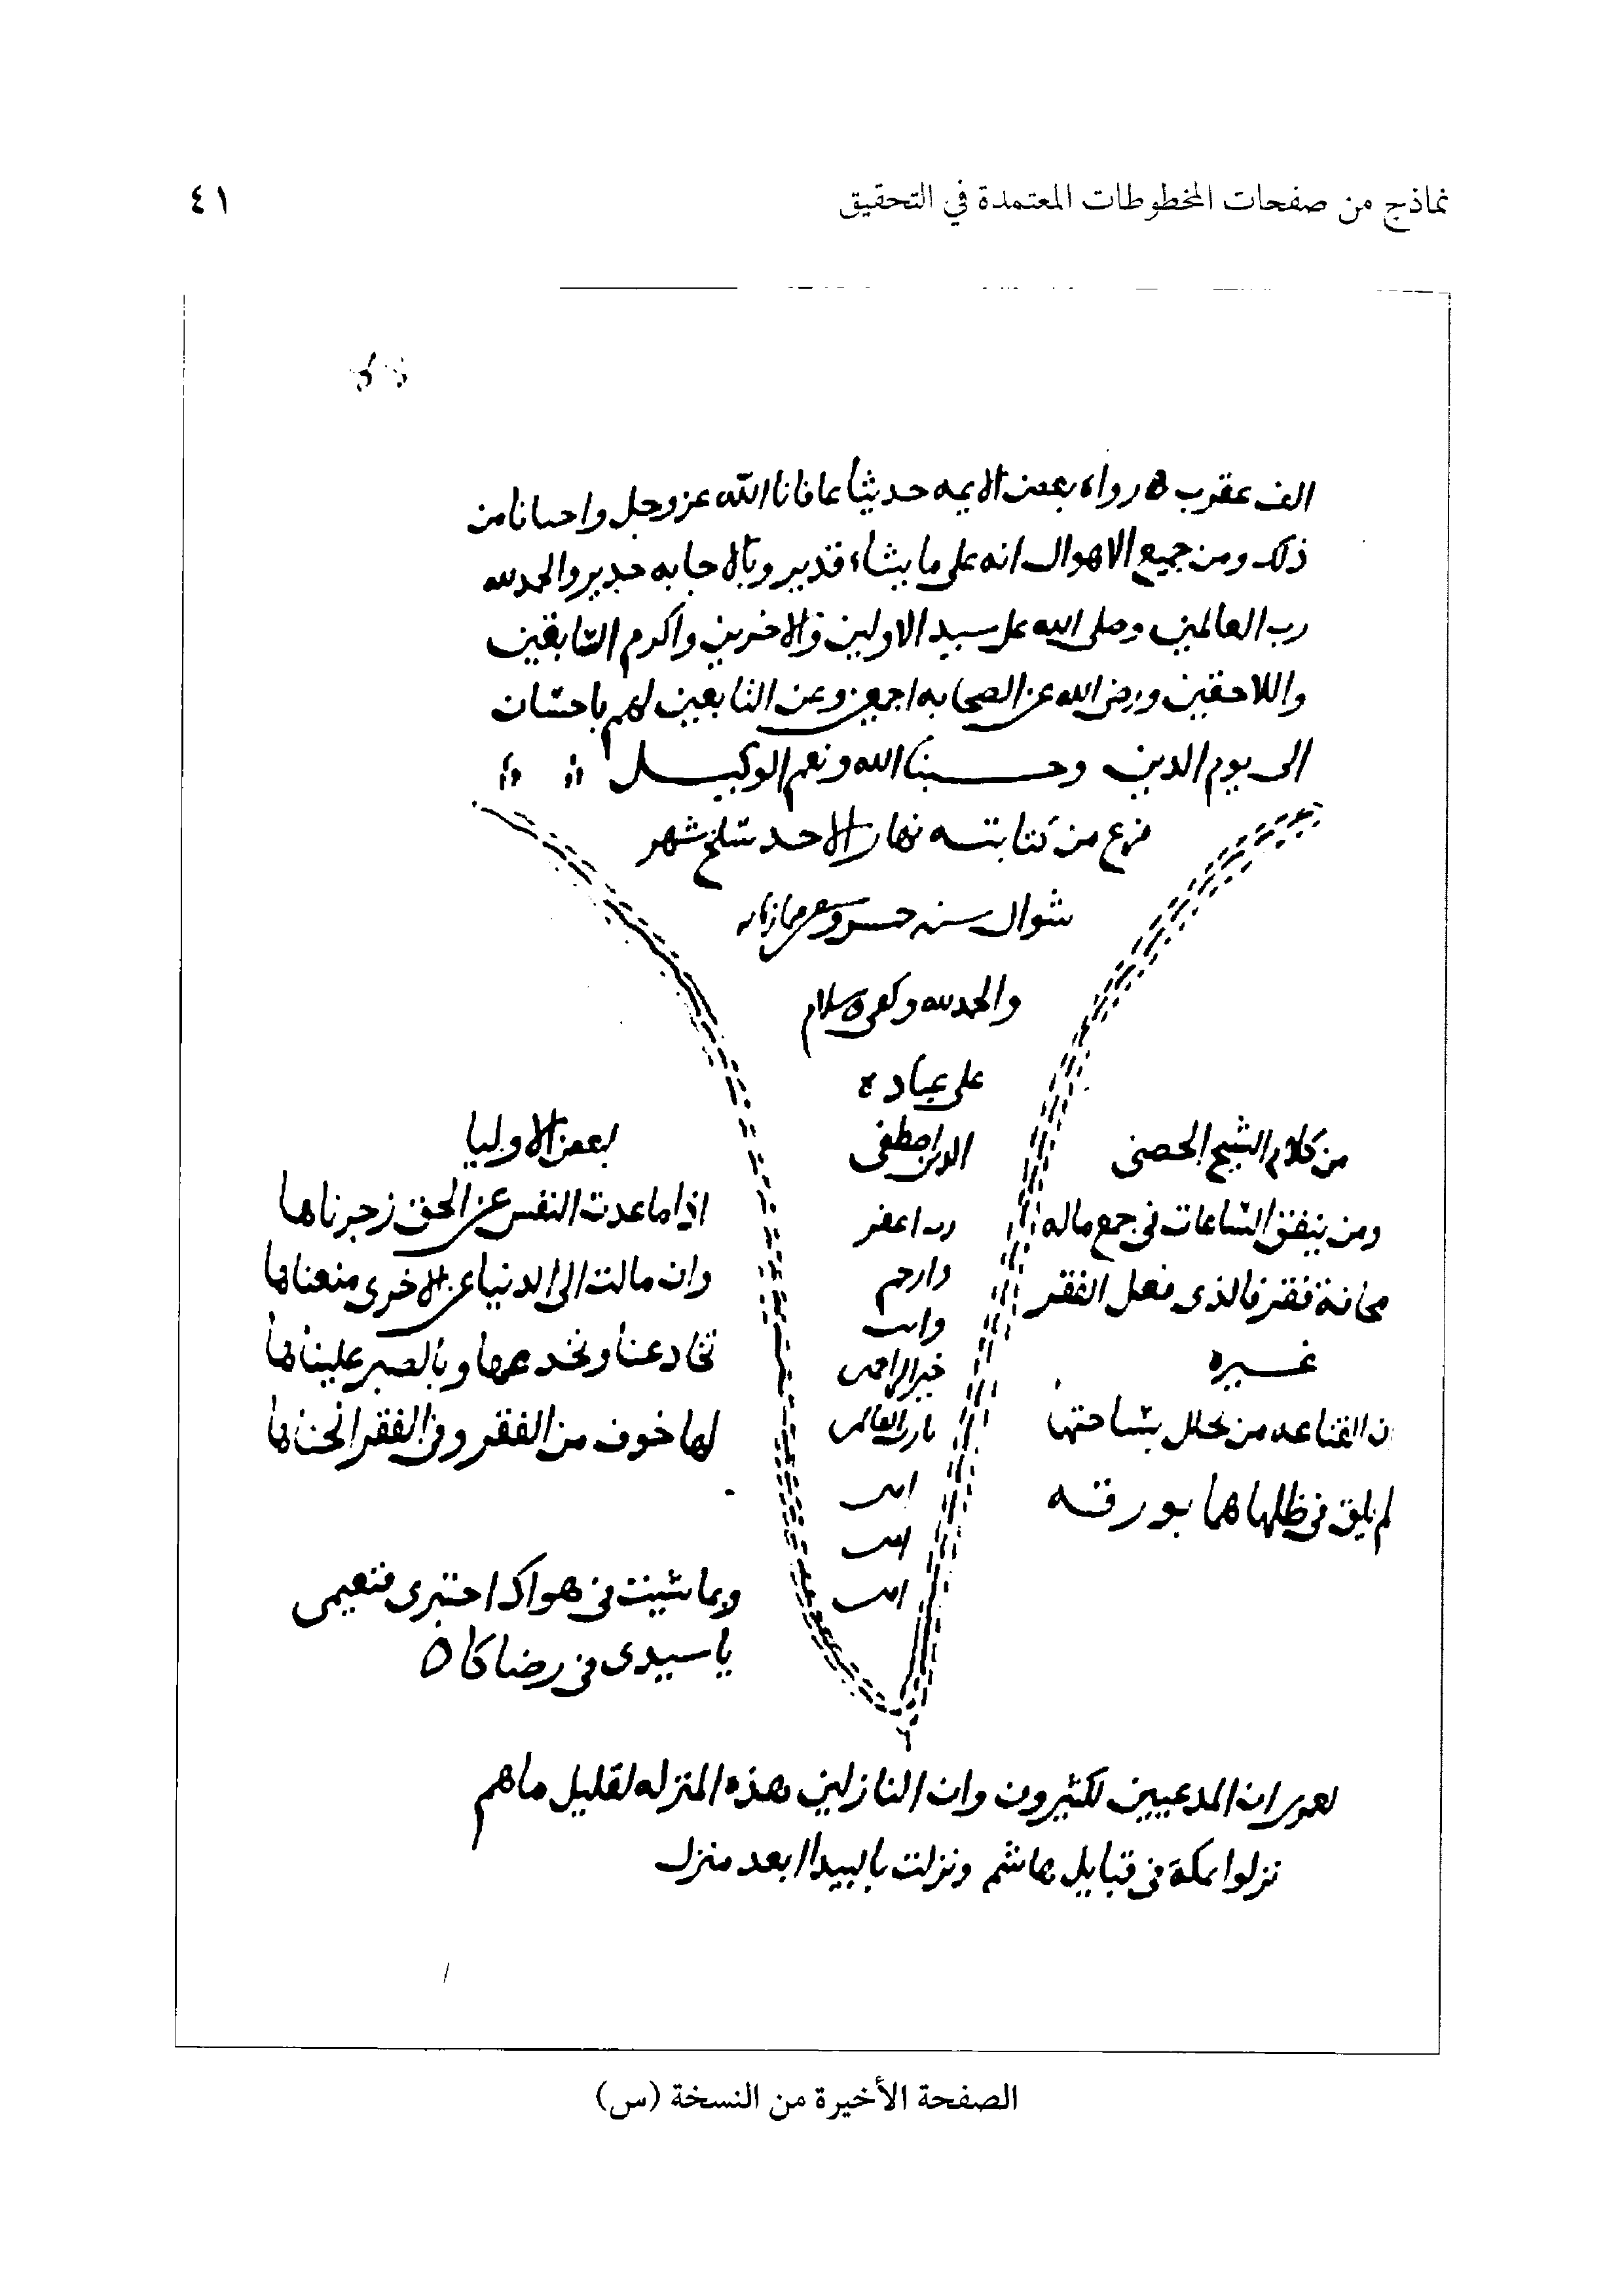 نماذج من صفحات المخطوطات المعتمدة في التحقيق
٤١
الف عقرب ه رواه بعض الايمه حديثا عافانا الله عز وجل واحبانا من
ذلك ومن جميع الاهوال انه على ما يشاء قدير وبالاجابه جدير والحمد لله
رب العالمين وصلى الله على سيد الاولين والاخرين واكرم السابقين
واللاحقين ورضى الله عن الصحابه اجمعين وعن التابعين لهم باحسان
الى يوم الدين وحسبنا الله ونعم الوكيل
فرغ من كتابته نهار الاحد سلخ شهر
شوال سنه خمس
والحمد لله وكفى وسلام
على عباده
الدين اصطفى
رب اغفر
وارحم
وانت
خير الراحمين
يارب العالمين
امين
امين
امين
من كلام الشيخ الحصنى
ومن ينفق الساعات في جمع ماله
مخافة فقر فالذى فعل الفقر
غيره
ان القناعه من يحلل بساحتها
لم يلق في ظلها هما يورقه
لبعض الاوليا
اذا ما عدت النفس عن الحق زجرناها
وان مالت الى الدنيا عن الاخرى منعناها
تخادعنا ونخدعها وبالصبر غلبناها
لها خوف من الفقر وفى الفقر انخناها
وبما شيت في هواك اختبرى فنعيمى
يا سيدى في رضاكا ٥
ان المدعيين لكثيرون وان النازلين هذه المنزله لقليل ما هم
نزلوا بمكة في قبايل هاشم ونزلت بالبيدا ابعد منزل
الصفحة الأخيرة من النسخة (س)